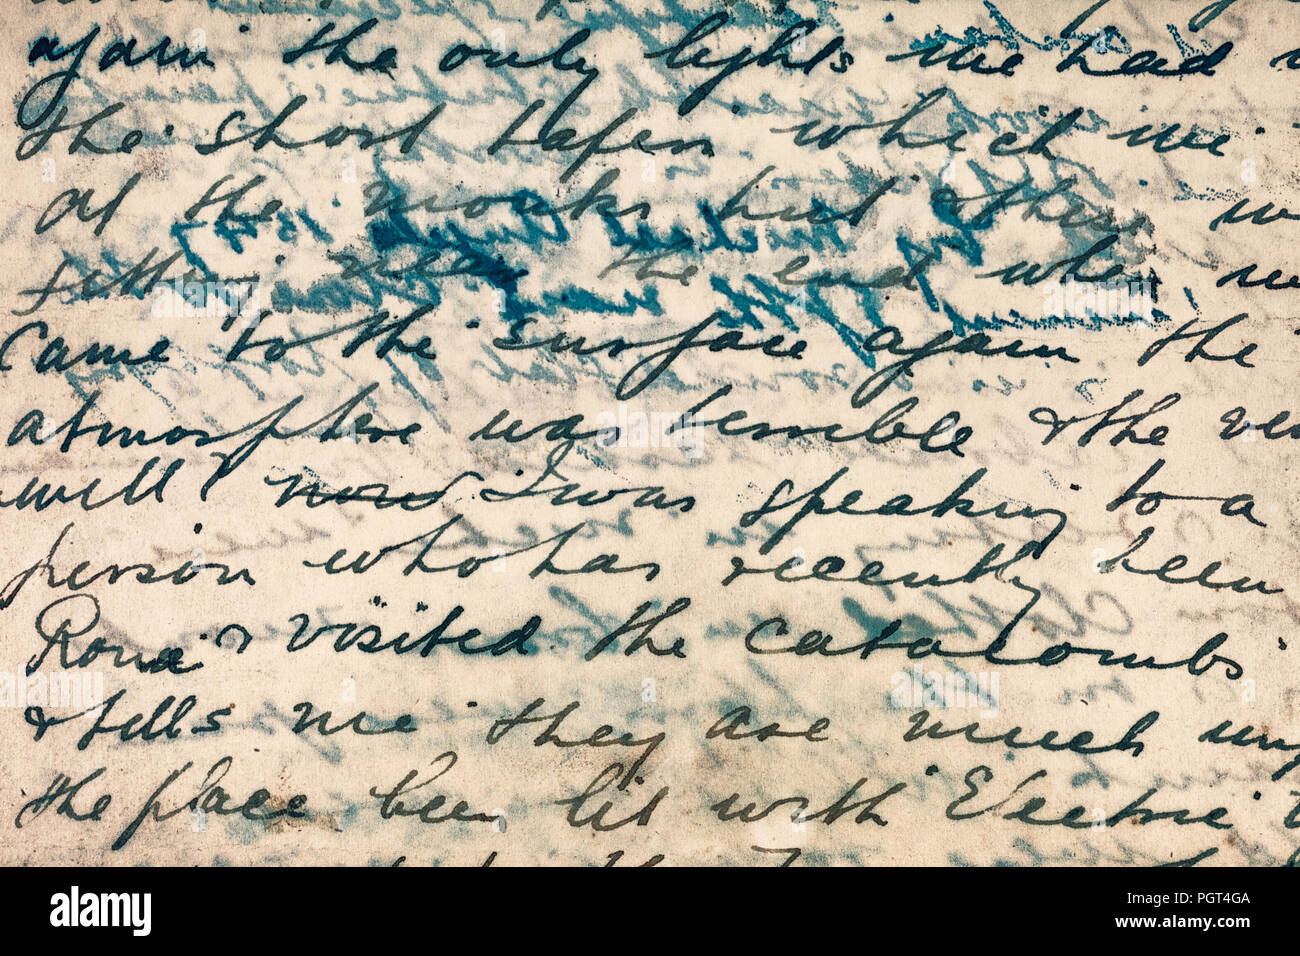 again the only lights we had
the short tapers which we
at the monks hut & these
getting near the end when we
came to the surface again the
atmosphere was terrible & the
well? now I was speaking to a
person who has recently been
Rome & visited the catacombs
& tells me they are much
the place been lit with Electric
alamy
Image ID: PGT4GA
www.alamy.com